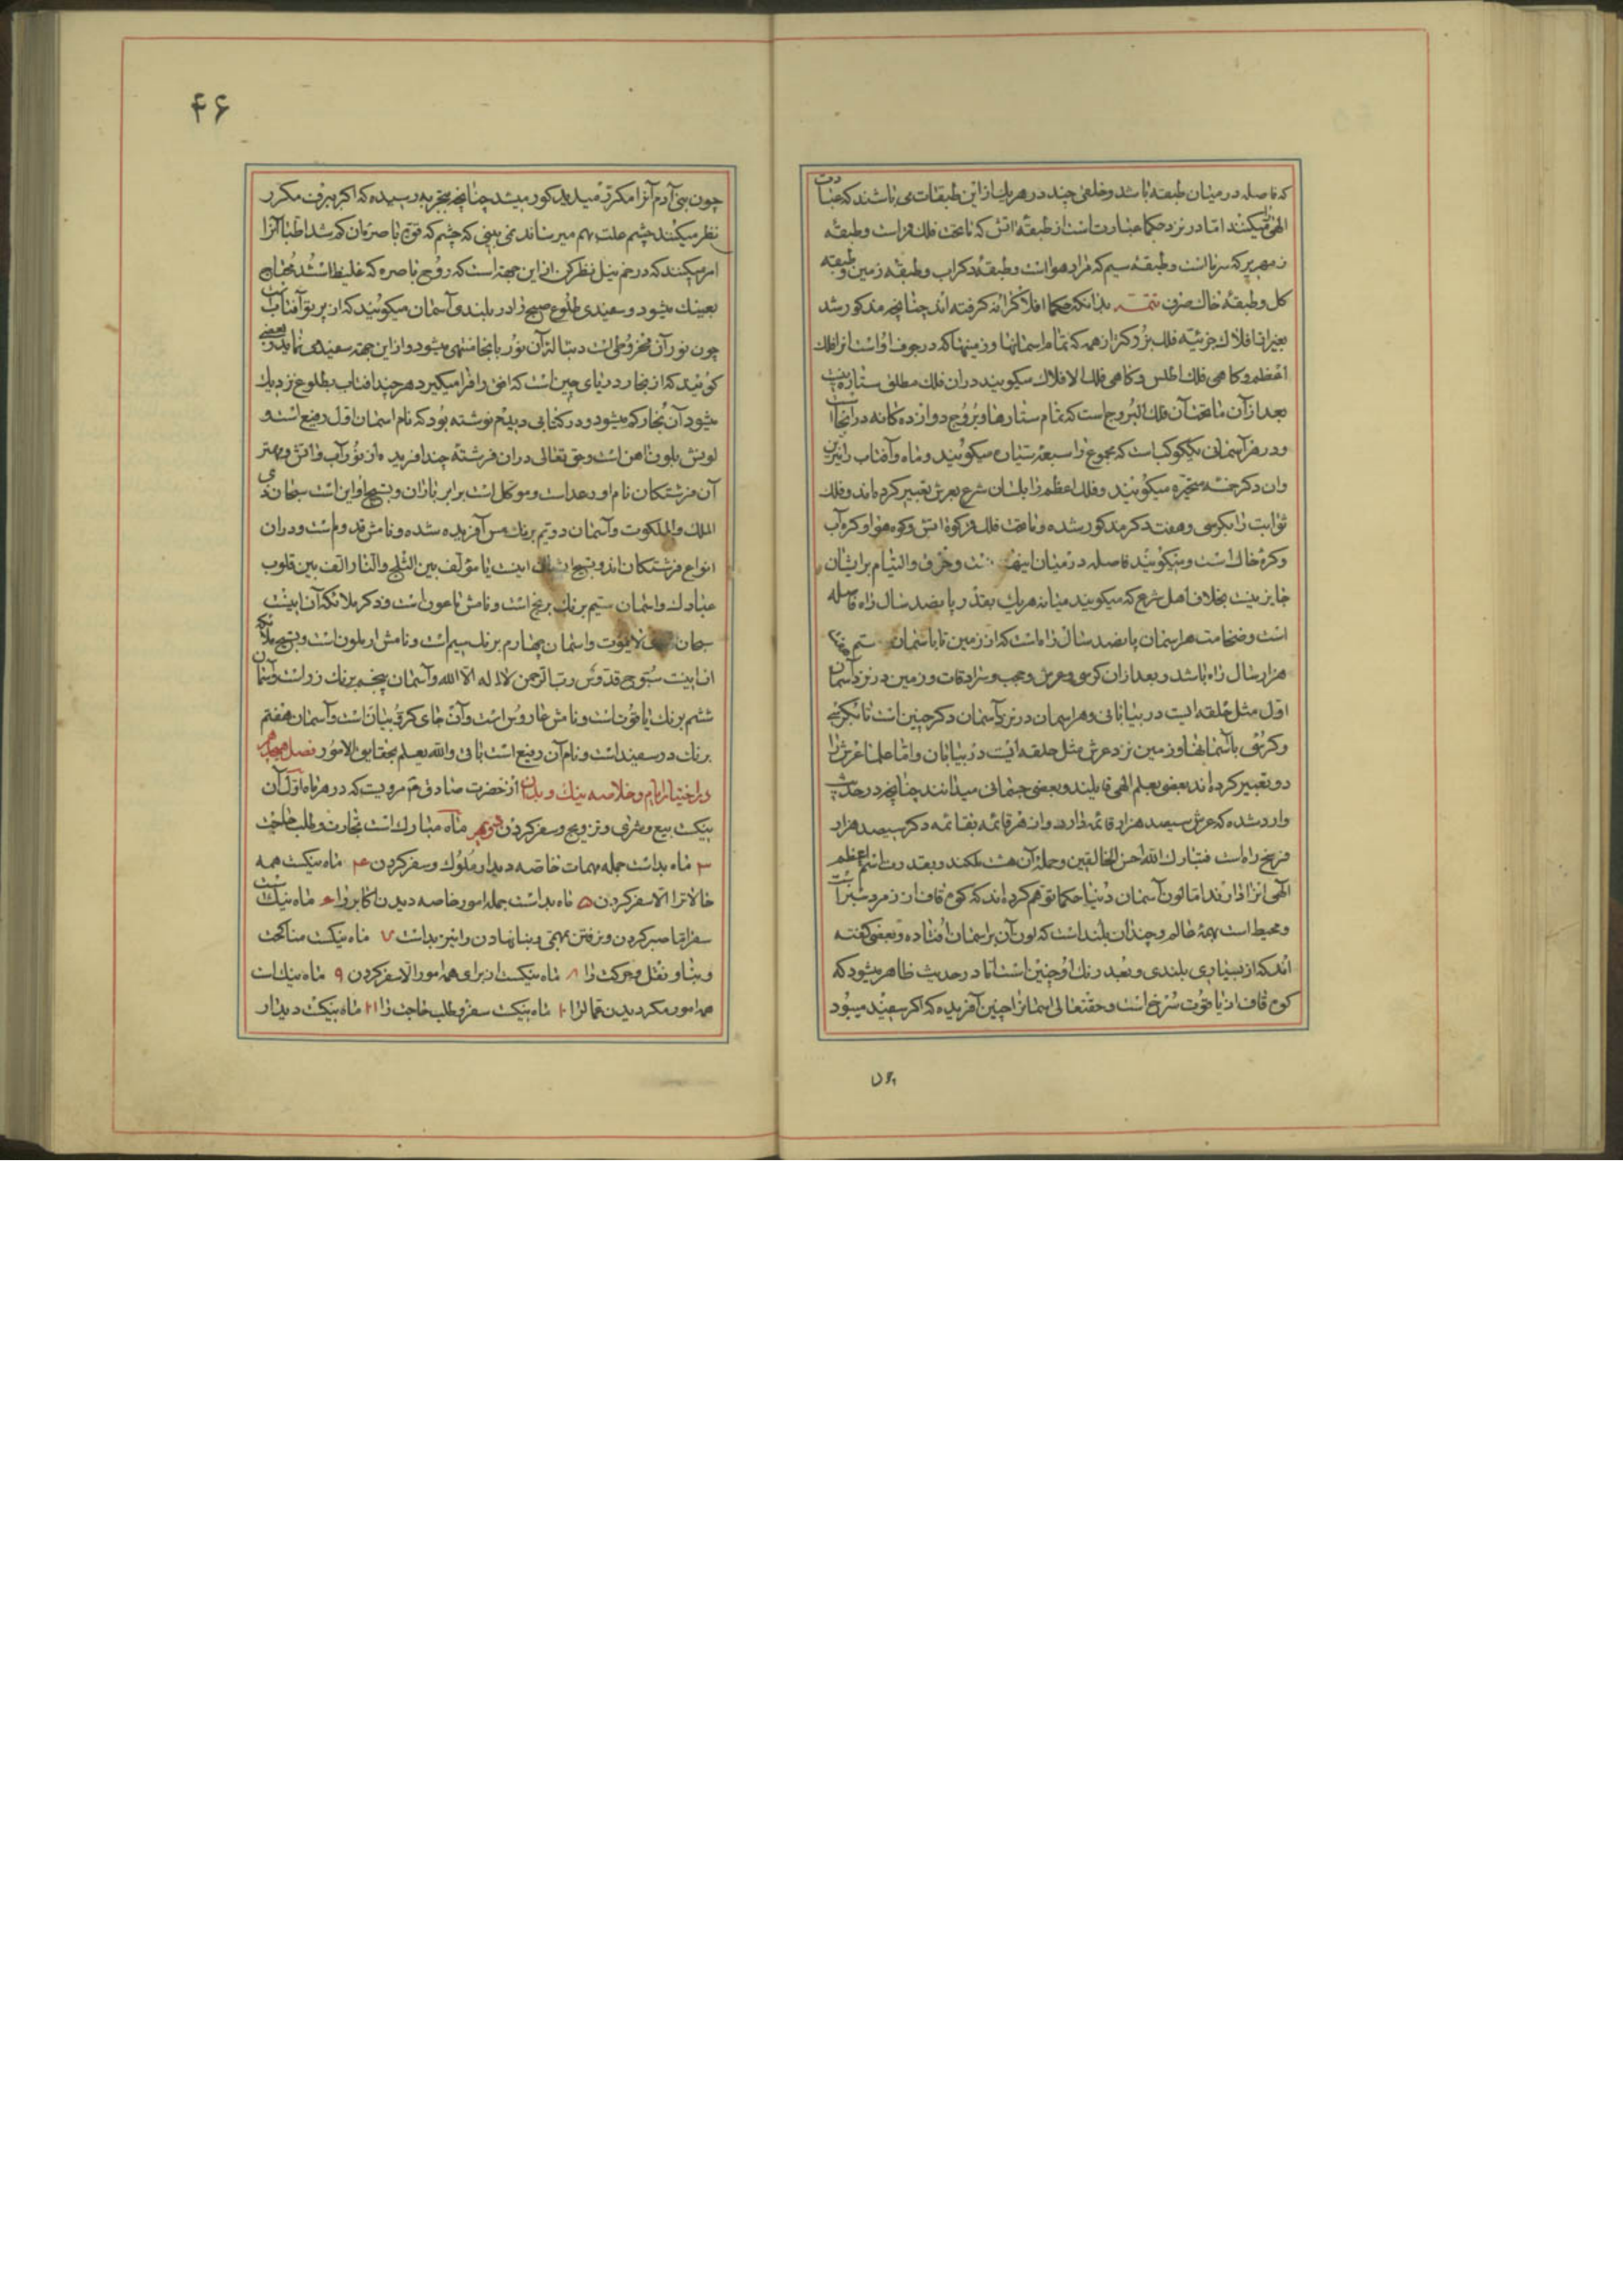 که فاصله در میان طبقه باشد و خلقی چند در هر یک از این طبقات می باشند که عبادت
الهی میکنند اما در نزد حکما عبارتست از طبقهٔ اتش که ما تحت فلک قمر است و طبقهٔ
زمهریر که سرماست و طبقهٔ سیم که مراد هوا است و طبقهٔ دکر اب و طبقهٔ زمین و طبقه
کل و طبقهٔ خاک صرف تتمه بدانکه حکما افلاک را نه کرفته اند چنانچه مذکور شد
بغیر از افلاک جزئیه فلک بزرکتر از همه که تمام اسمانها و زمینها که در جوف او است انرا فلک
اعظم و کاهی فلک اطلس و کاهی فلک الافلاک میکویند در ان فلک مطلق ستاره نیست
بعد از آن ما تحت آن فلک البروج است که تمام ستارها و بروج دوازده کانه در انجا است
و در هر آسمانی یک کوکبست که مجموع را سبعهٔ سیاره میکویند و ماه و آفتاب را نیرین
وان دکر خمسه متحیره میکویند و فلک اعظم را بلسان شرع بعرش تعبیر کرده اند و فلک
ثوابت را بکرسی و هفت دکر مذکور شده و ما تحت فلک قمر کرهٔ اتش و کره هوا و کره آب
و کره خاک است و میکویند فاصله در میان اینها نیست و خرق و التیام بر ایشان
جایز نیست بخلاف اهل شرع که میکویند میانه هر یک بقدر پانصد سال راه فاصله
است و ضخامت هر اسمان پانصد سال راه است که از زمین تا باسمان
هزار سال راه باشد و بعد از ان کرسی و عرش و حجب و سرادقات و زمین در نزد آسمان
اول مثل حلقه ایست در بیابانی و هر اسمان در نزد آسمان دکر چنین است تا بکرسی
و کرسی با آسمانها و زمین نزد عرش مثل حلقه ایست در بیابان و اما علما عرش را
دو تعبیر کرده اند بعضی بعلم الهی قایلند و بعضی جسمانی میدانند چنانچه در حدیث
وارد شده که عرش سیصد هزار قائمه دارد و از هر قائمه بقائمه دکر سیصد هزار
فرسخ راه است فتبارک الله احسن الخالقین و حمله آن هشت ملکند و بقدرت اسم اعظم
الهی انرا دارند اما لون آسمان دنیا حکما توهم کرده اند که کوه قاف از زمرد سبز است
و محیط است بهمهٔ عالم و چندان بلند است که لون آن بر اسمان افتاده و بعضی کفته
اند که از بسیاری بلندی و بعد رنک او چنین است اما در حدیث ظاهر میشود که
کوه قاف از یاقوت سرخ است و حقتعالی اسمانرا چنین آفریده که اکر سفیند میبود
چون
۴۶
چون بنی آدم آنرا مکرر میدید کور میشد چنانچه بتجربه رسیده که اکر ببرف مکرر
نظر میکنند چشم علت بهم میرساند نمی بینی که چشم که قوة باصره آن کم شد اطبا آنرا
امر میکنند که در خم نیل نظر کن از این جهة است که روح باصره که غلیظ است شد محتاج
بعینک میشود و سفیدی طلوع صبح را در بلندی آسمان میکویند که از پرتو آفتاب است
چون نور آن مخروطی است دنباله آن نور بانجا منتهی میشود و از این جهة سفیدی نماید و بعضی
کویند که از بخار دریای چین است که افق را فرا میکیرد هر چند افتاب بطلوع نزدیک
میشود آن بخار کم میشود و در کتابی دیدم نوشته بود که نام اسمان اول رفیع است و
لونش بلون اهن است و حق تعالی در ان فرشتهٔ چند افریده از نور آب و اتش و مهتر
آن فرشتکان نام او رعد است و موکل است بر ابر باران و تسبیح او این است سبحان ذی
الملک والملکوت و آسمان دویم برنک مس آفریده شده و نامش قدوم است و در ان
انواع فرشتکان اند و تسبیح ایشان اینست یا مؤلف بین الثلج والنار الف بین قلوب
عبادک و اسمان سیم برنک برنج است و نامش ماعون است و ذکر ملائکه آن اینست
سبحان لا یموت و اسمان چهارم برنک سیم است و نامش ارملون است و تسبیح ملائکه
ان اینست سبوح قدوس رب الرحمن لا اله الا الله و آسمان پنجم برنک زر است و آسمان
ششم برنک یاقوت است و نامش عاروس است و آن جای کروبیان است و آسمان هفتم
برنک در سفید است و نام آن رفیع است باقی والله یعلم بحقایق الامور فصل چهارم
در اختیار ایام و خلاصه نیک و بد آن از حضرت صادق ع مرویست که در هر ماه اول آن
نیکست بیع و شری و تزویج و سفر کردن دویم ماه مبارک است تجارت و طلب حاجت
۳ ماه بد است جمله مهمات خاصه دیدار ملوک و سفر کردن ۴ ماه نیکست همه
حالاترا الا سفر کردن ۵ ماه بد است جمله امور خاصه دیدن اکابر را ۶ ماه نیک است
سفر اما صبر کردن و نرفتن و بنا نهادن را نیز بد است ۷ ماه نیکست مناکحت
و بنا و نقل و حرکت را ۸ ماه نیکست از برای همه امور الا سفر کردن ۹ ماه نیک است
همه امور مکر دیدن قمال را ۱۰ ماه نیکست سفر و طلب حاجت را ۱۱ ماه نیکست دیدار